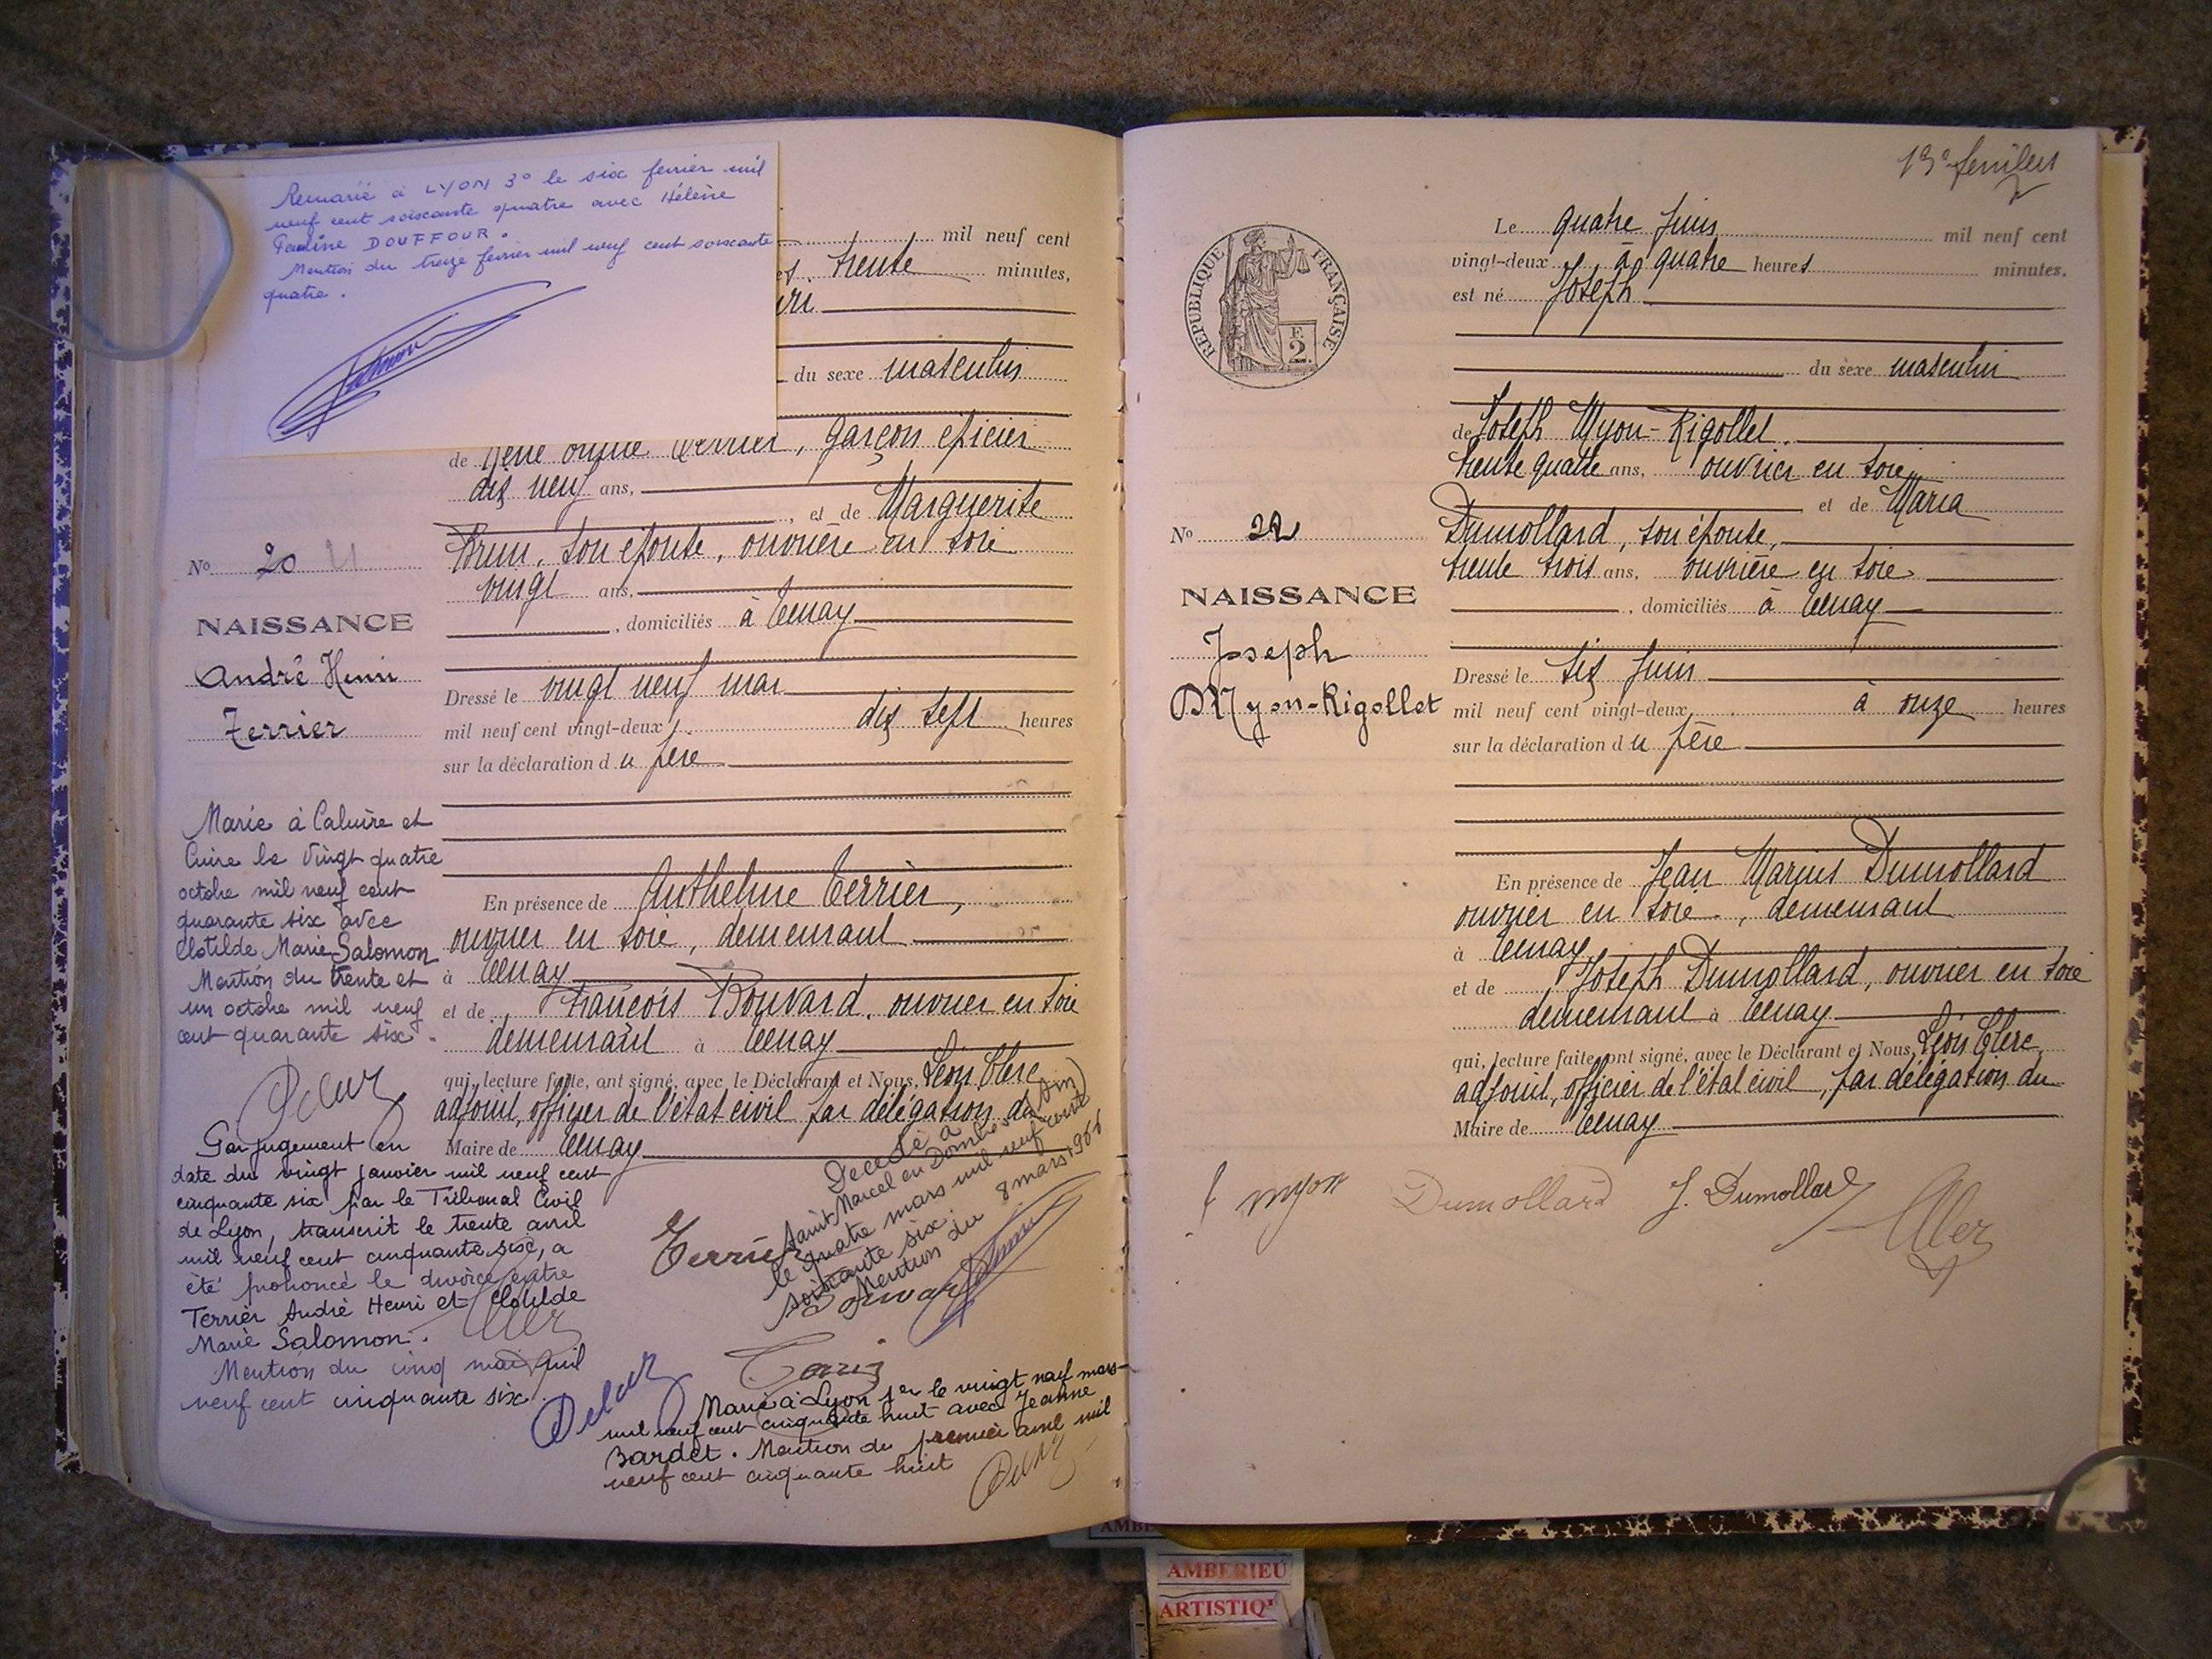 Remarié à LYON 3° le six fevrier mil
neuf cent soixante quatre avec Hélène
Pauline DOUFFOUR.
Mention du treize fevrier mil neuf cent soixante
quatre.
mil neuf cent
trente minutes,
du sexe masculin
de Terrier, garçon épicier
dix neuf ans,
, et de Marguerite
Brun, son épouse, ouvrière en soie
vingt ans,
, domiciliés à Tenay
Dressé le vingt neuf mai
mil neuf cent vingt-deux, dix sept heures
sur la déclaration du père
No 20
NAISSANCE
André Henri
Terrier
Marié à Caluire et
Cuire le vingt quatre
octobre mil neuf cent
quarante six avec
Clotilde Marie Salomon
Mention du trente et
un octobre mil neuf
cent quarante six.
En présence de Anthelme Terrier,
ouvrier en soie, demeurant
à Tenay
et de François Bouvard, ouvrier en soie
demeurant à Tenay
qui, lecture faite, ont signé, avec le Déclarant et Nous, Léon Clerc
adjoint, officier de l'état civil par délégation du
Maire de Tenay
Par jugement en
date du vingt janvier mil neuf cent
cinquante six par le Tribunal Civil
de Lyon, transcrit le trente avril
mil neuf cent cinquante six, a
été prononcé le divorce entre
Terrier André Henri et Clotilde
Marie Salomon.
Mention du cinq mai mil
neuf cent cinquante six.
Terrier
Décédé à
Saint Marcel en Dombes (Ain)
le quatre mars mil neuf cent
soixante six.
Mention du 8 mars 1966
Marié à Lyon 1er le vingt neuf mars
mil neuf cent cinquante huit avec Jeanne
Bardet. Mention du premier avril mil
neuf cent cinquante huit
Le quatre juin mil neuf cent
vingt-deux, à quatre heures minutes,
est né Joseph
du sexe masculin
de Joseph Myon-Rigollet.
trente quatre ans, ouvrier en soie
et de Maria
Dumollard, son épouse,
trente trois ans, ouvrière en soie
, domiciliés à Tenay
Dressé le six juin
mil neuf cent vingt-deux, à onze heures
sur la déclaration du père
REPUBLIQUE FRANÇAISE
F.
2.
No 22
NAISSANCE
Joseph
Myon-Rigollet
En présence de Jean Marius Dumollard
ouvrier en soie, demeurant
à Tenay
et de Joseph Dumollard, ouvrier en soie
demeurant à Tenay
qui, lecture faite, ont signé, avec le Déclarant et Nous, Léon Clerc
adjoint, officier de l'état civil, par délégation du
Maire de Tenay
myon Dumollard J. Dumollard
AMBERIEU
ARTISTIQ